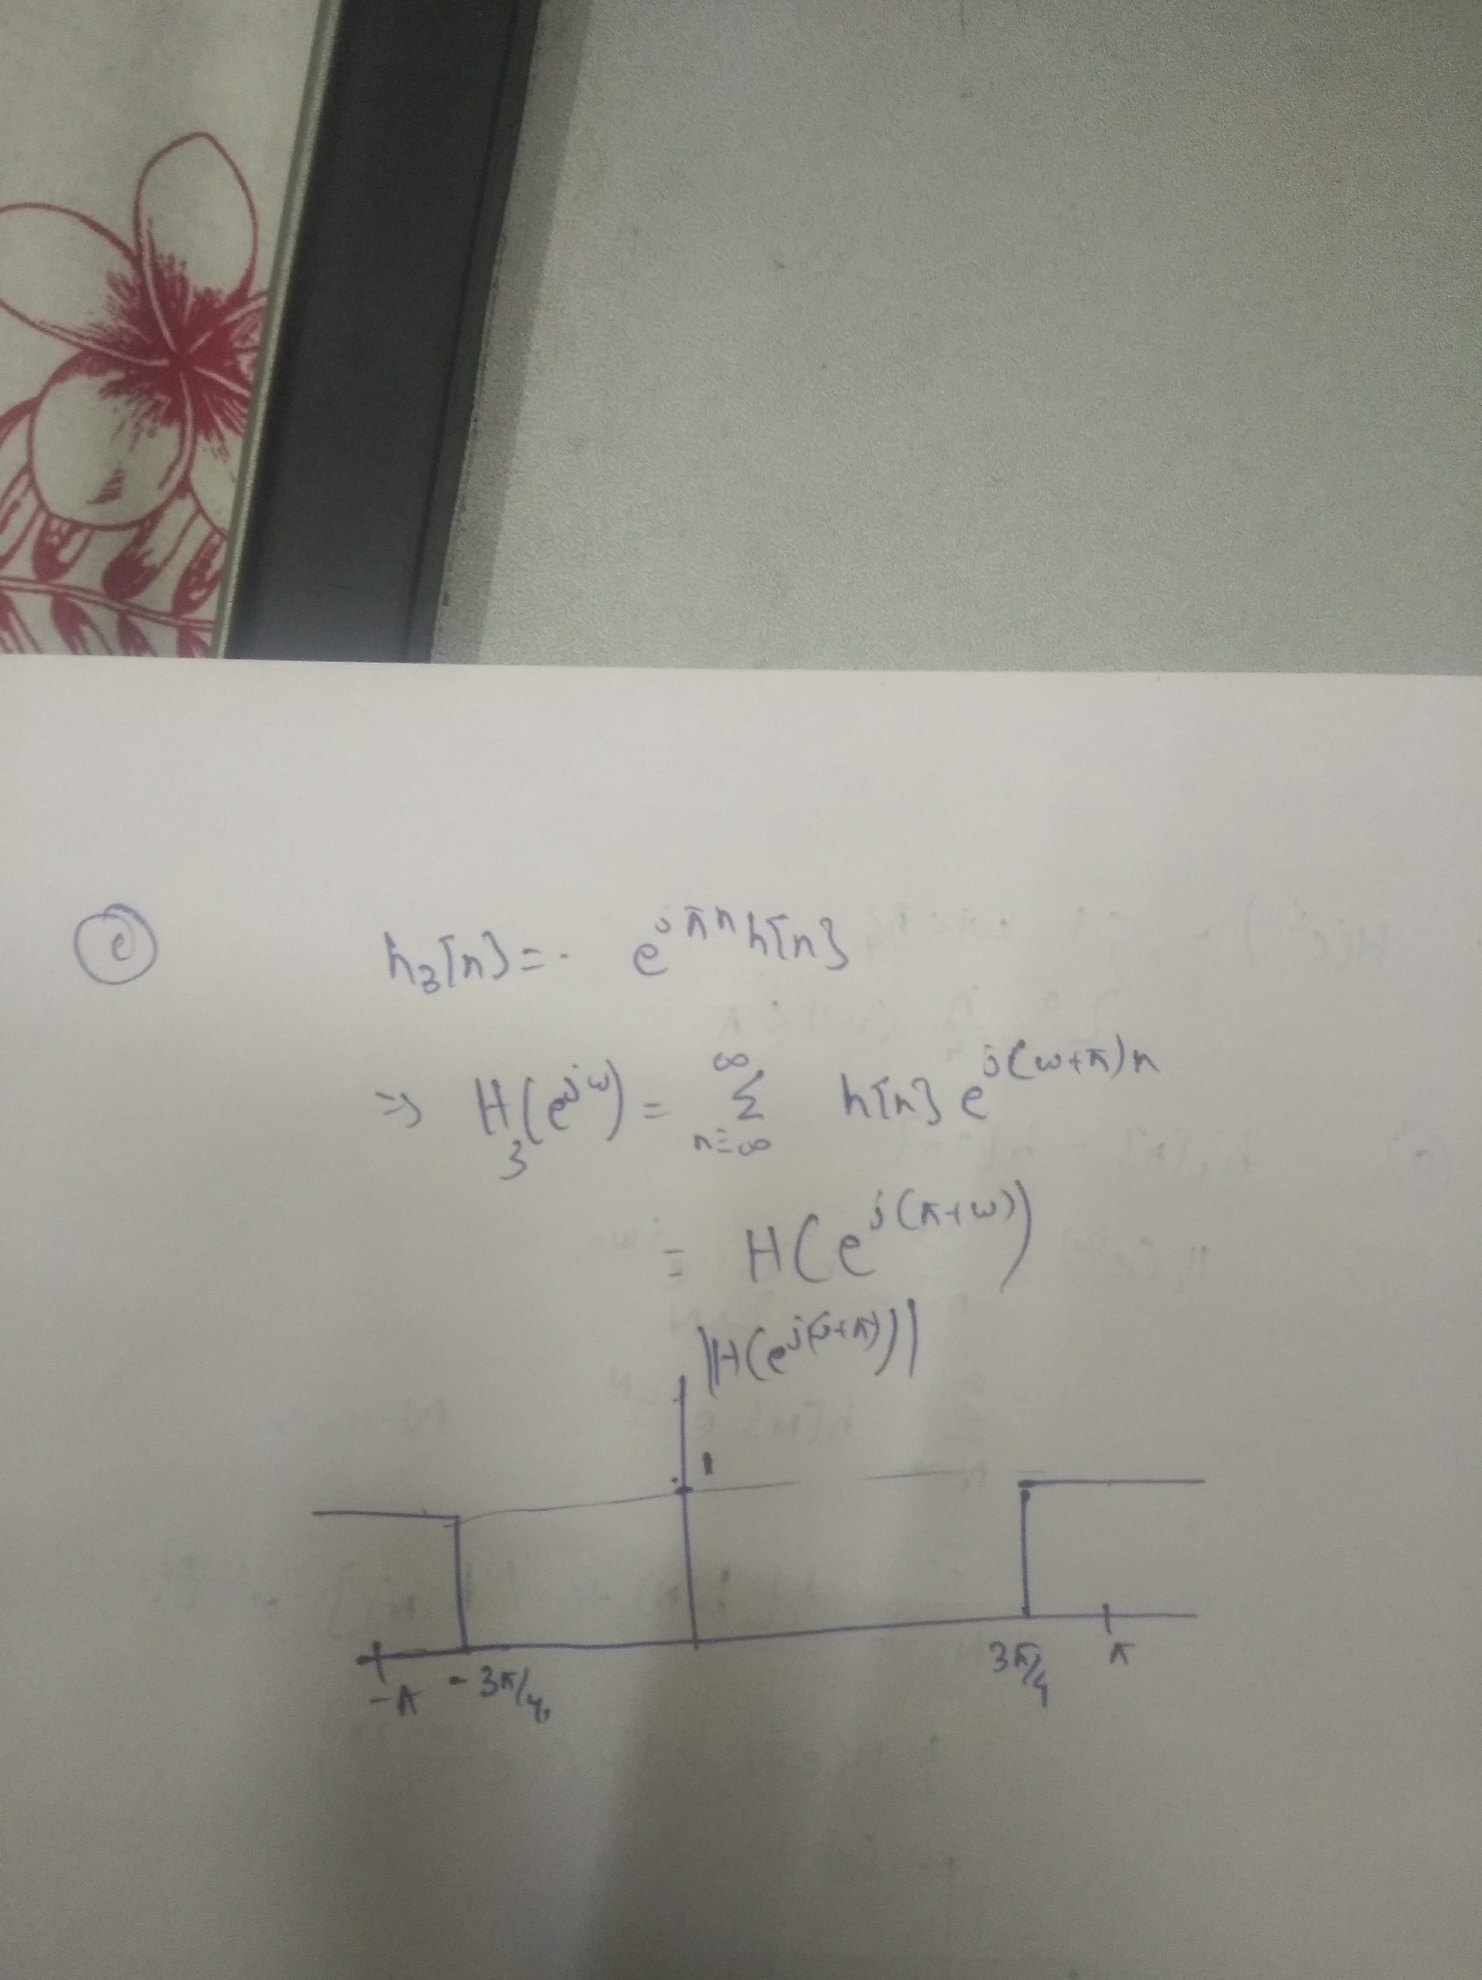 (c) h₃[n] = . e^{jπn} h[n]
⇒ H₃(e^{jω}) = Σ_{n=-∞}^{∞} h[n] e^{j(ω+π)n}
= H(e^{j(π+ω)})
|H(e^{j(ω+π)})|
1
-π -3π/4 3π/4 π